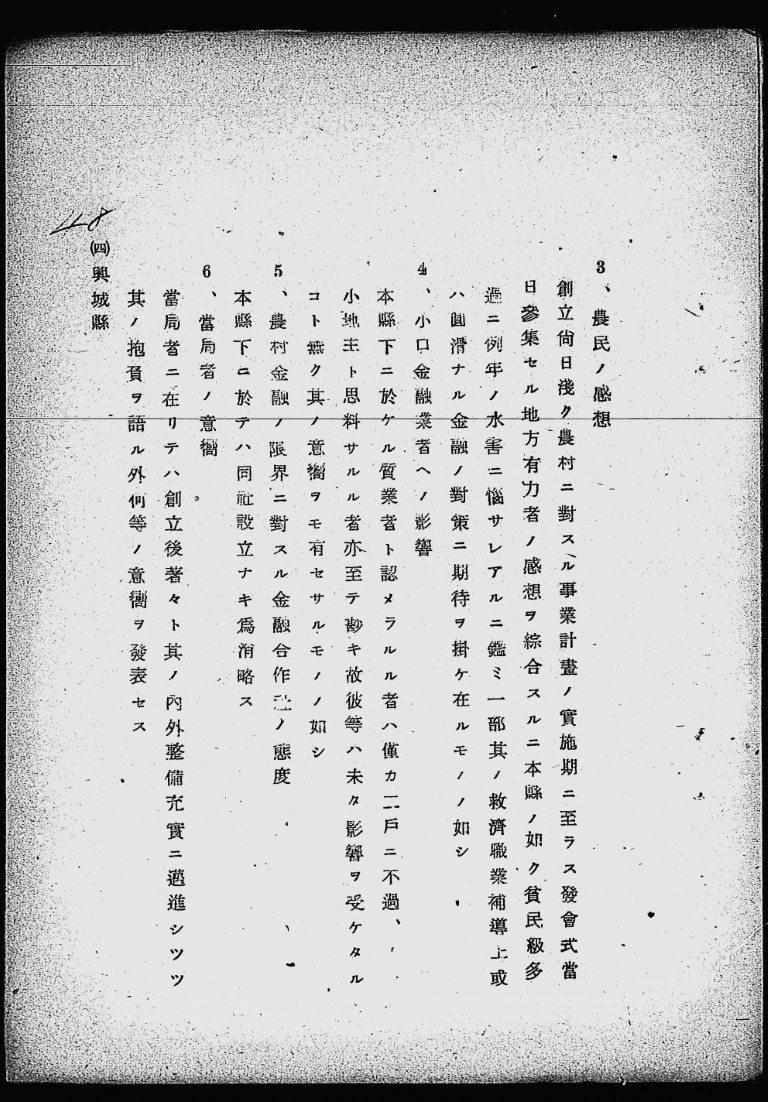 3、農民ノ感想
創立尙日淺ク農村ニ對スル事業計畫ノ實施期ニ至ラス發會式當
日參集セル地方有力者ノ感想ヲ綜合スルニ本縣ノ如ク貧民級多
過ニ例年ノ水害ニ惱サレアルニ鑑ミ一部其ノ救濟職業補導上或
ハ圓滑ナル金融ノ對策ニ期待ヲ掛ケ在ルモノノ如シ
4、小口金融業者ヘノ影響
本縣下ニ於ケル質業者ト認メラルル者ハ僅カ二戶ニ不過、
小地主ト思料サルル者亦至テ尠キ故彼等ハ未タ影響ヲ受ケタル
コト無ク其ノ意嚮ヲモ有セサルモノノ如シ
5、農村金融ノ限界ニ對スル金融合作社ノ態度
本縣下ニ於テハ同社設立ナキ爲省略ス
6、當局者ノ意嚮
當局者ニ在リテハ創立後著々ト其ノ內外整備充實ニ邁進シツツ
其ノ抱負ヲ語ル外何等ノ意嚮ヲ發表セス
㈣興城縣